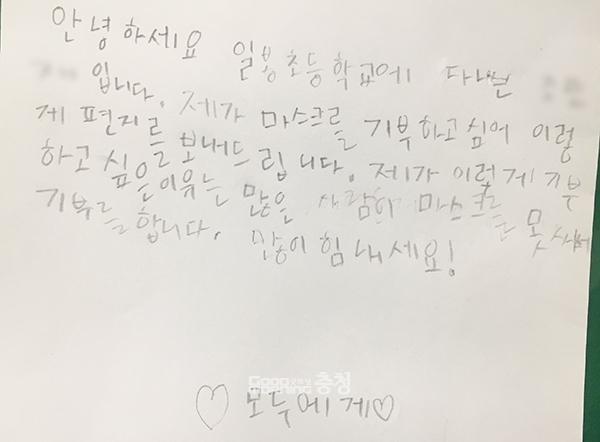 안녕하세요 일봉초등학교에 다니는
입니다. 제가 마스크를 기부하고싶어 이렇
게 편지를 보내드립니다. 제가 이렇게 기부
하고 싶은이유는 많은 사람이 마스크를 못 사서
기부를합니다. 많이 힘내세요!
♡ 모두에게♡
Good모닝충청